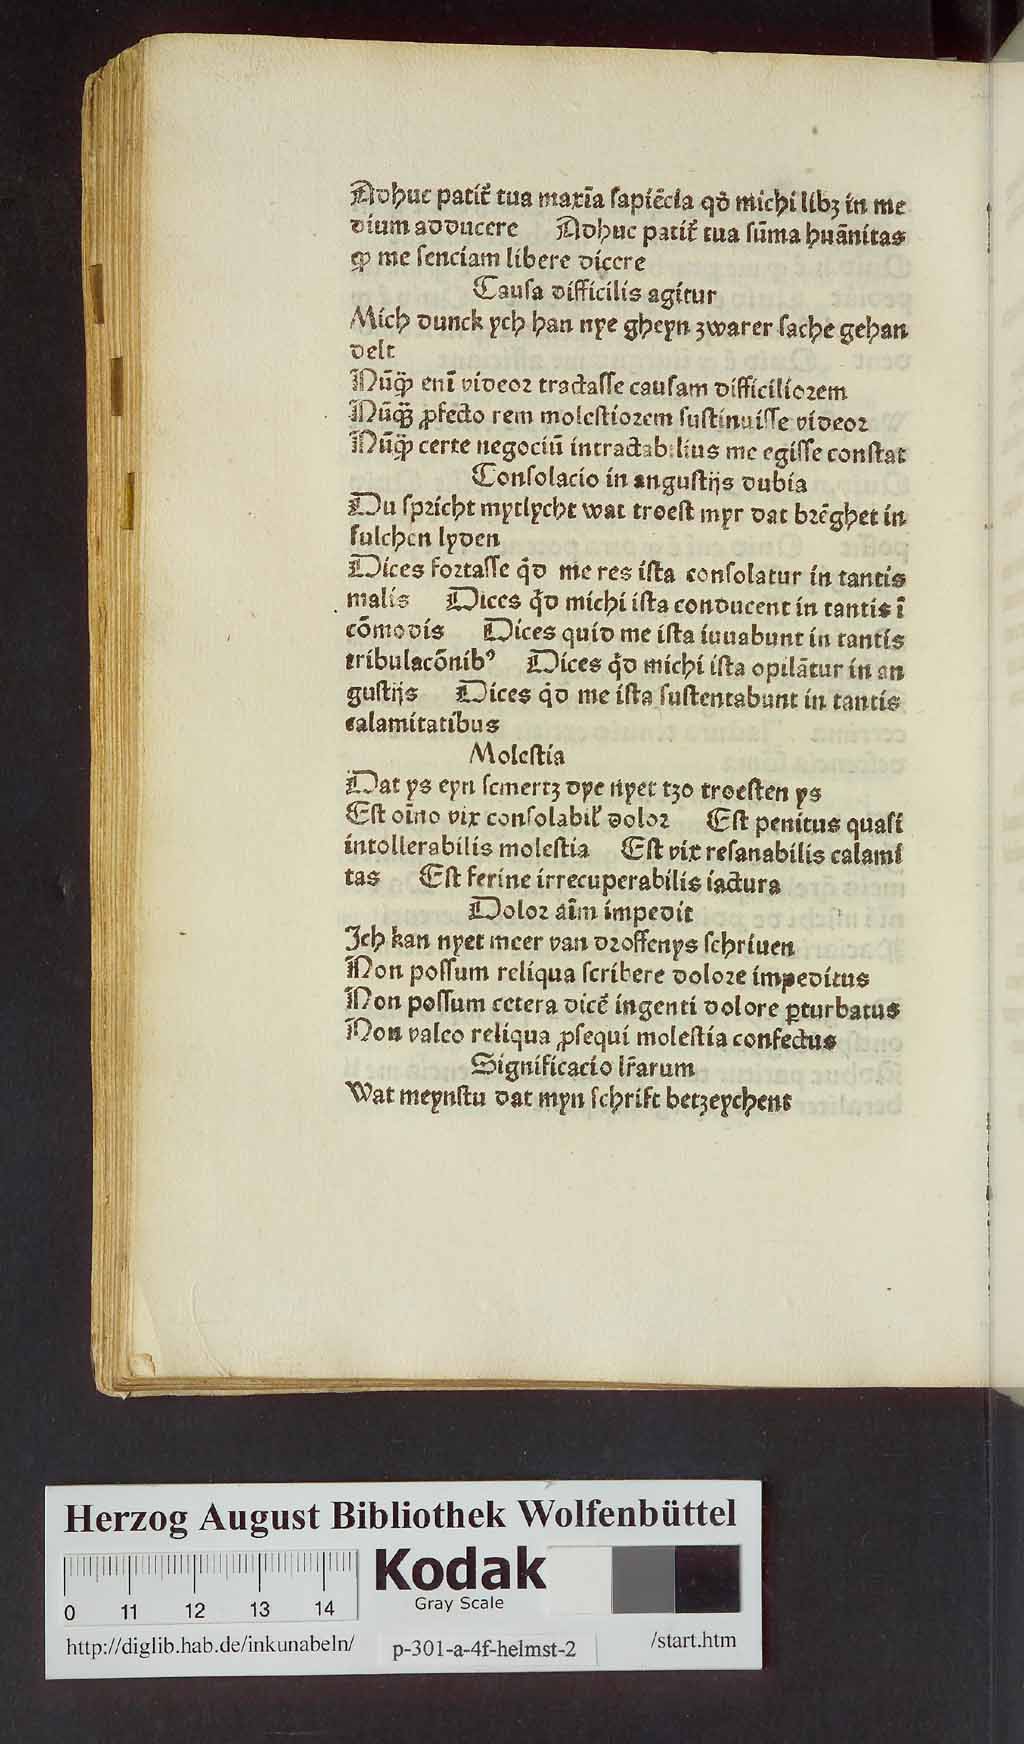 Adhuc patit᷑ tua maxīa sapiēcia qd̄ michi libʒ in me
dium adducere Adhuc patit᷑ tua sūma huānitas
ꝙ me senciam libere dicere
Causa difficilis agitur
Mich dunck ych han nye gheyn zwarer sache gehan
delt
Nūꝙ̄ enī videor tractasse causam difficiliorem
Nūꝙ̄ ꝓfecto rem molestiorem sustinuisse videor
Nūꝙ̄ certe negociū intractabilius me egisse constat
Consolacio in angustijs dubia
Du spricht mytlycht wat troest myr dat brēghet in
sulchen lyden
Dices fortasse qͥd me res ista consolatur in tantis
malis Dices qͥd michi ista conducent in tantis ī
cōmodis Dices quid me ista iuuabunt in tantis
tribulacōnibꝰ Dices qͥd michi ista opilātur in an
gustijs Dices qͥd me ista sustentabunt in tantis
calamitatibus
Molestia
Dat ys eyn scmertz dye nyet tzo troesten ys
Est oīno vix consolabil᷑ dolor Est penitus quasi
intollerabilis molestia Est vix resanabilis calami
tas Est ferine irrecuperabilis iactura
Dolor aīm impedit
Ich kan nyet meer van droffenys schriuen
Non possum reliqua scribere dolore impeditus
Non possum cetera dicē ingenti dolore ꝑturbatus
Non valeo reliqua ꝓsequi molestia confectus
Significacio lr̄arum
Wat meynstu dat myn schrift betzeychent
Herzog August Bibliothek Wolfenbüttel
Kodak
Gray Scale
0 11 12 13 14
http://diglib.hab.de/inkunabeln/ p-301-a-4f-helmst-2 /start.htm